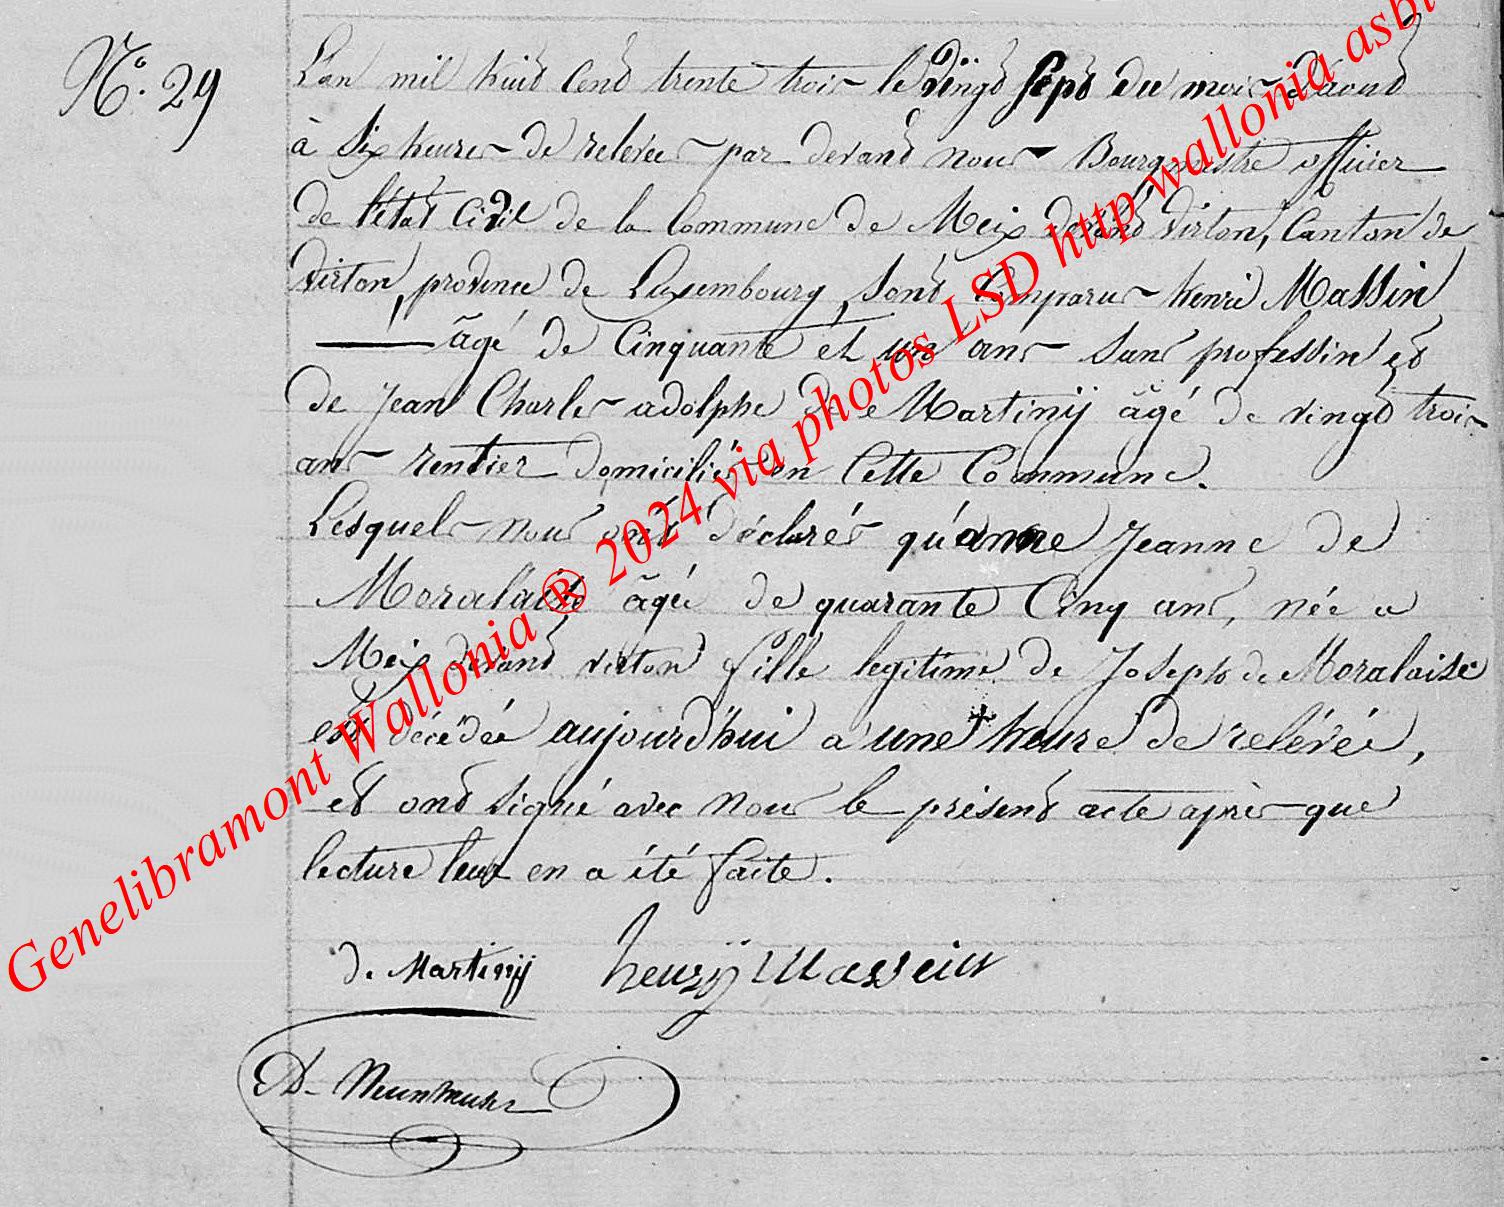 N° 29
L'an mil huit Cent trente trois le Vingt Sept du mois d'aout
à Six heures de relevée par devant nous Bourgmestre officier
de l'état Civil de la Commune de Meix devant Virton, Canton de
Virton, province de Luxembourg, Sont Comparus henri Massin
âgé de Cinquante et un ans Sans profession et
de Jean Charles adolphe de Martinÿ âgé de vingt trois
ans rentier domiciliés en Cette Commune.
Lesquels nous ont déclarés qu'anne Jeanne de
Moralaise âgée de quarante Cinq ans, née a
Meix devant virton fille legitime de Joseph de Moralaise
est décédée aujourd'hui a une heure de relévée,
et ont Signé avec nous le présent acte après que
lecture leur en a été faite.
de Martinÿ henrÿ Massin
Genelibramont Wallonia ® 2024 via photos LSD http wallonia asbl